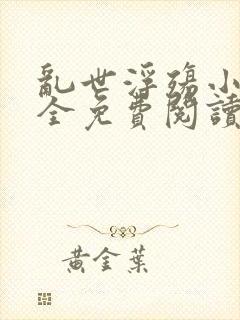 亂世浮殤小
全免費閱讀
黃金葉